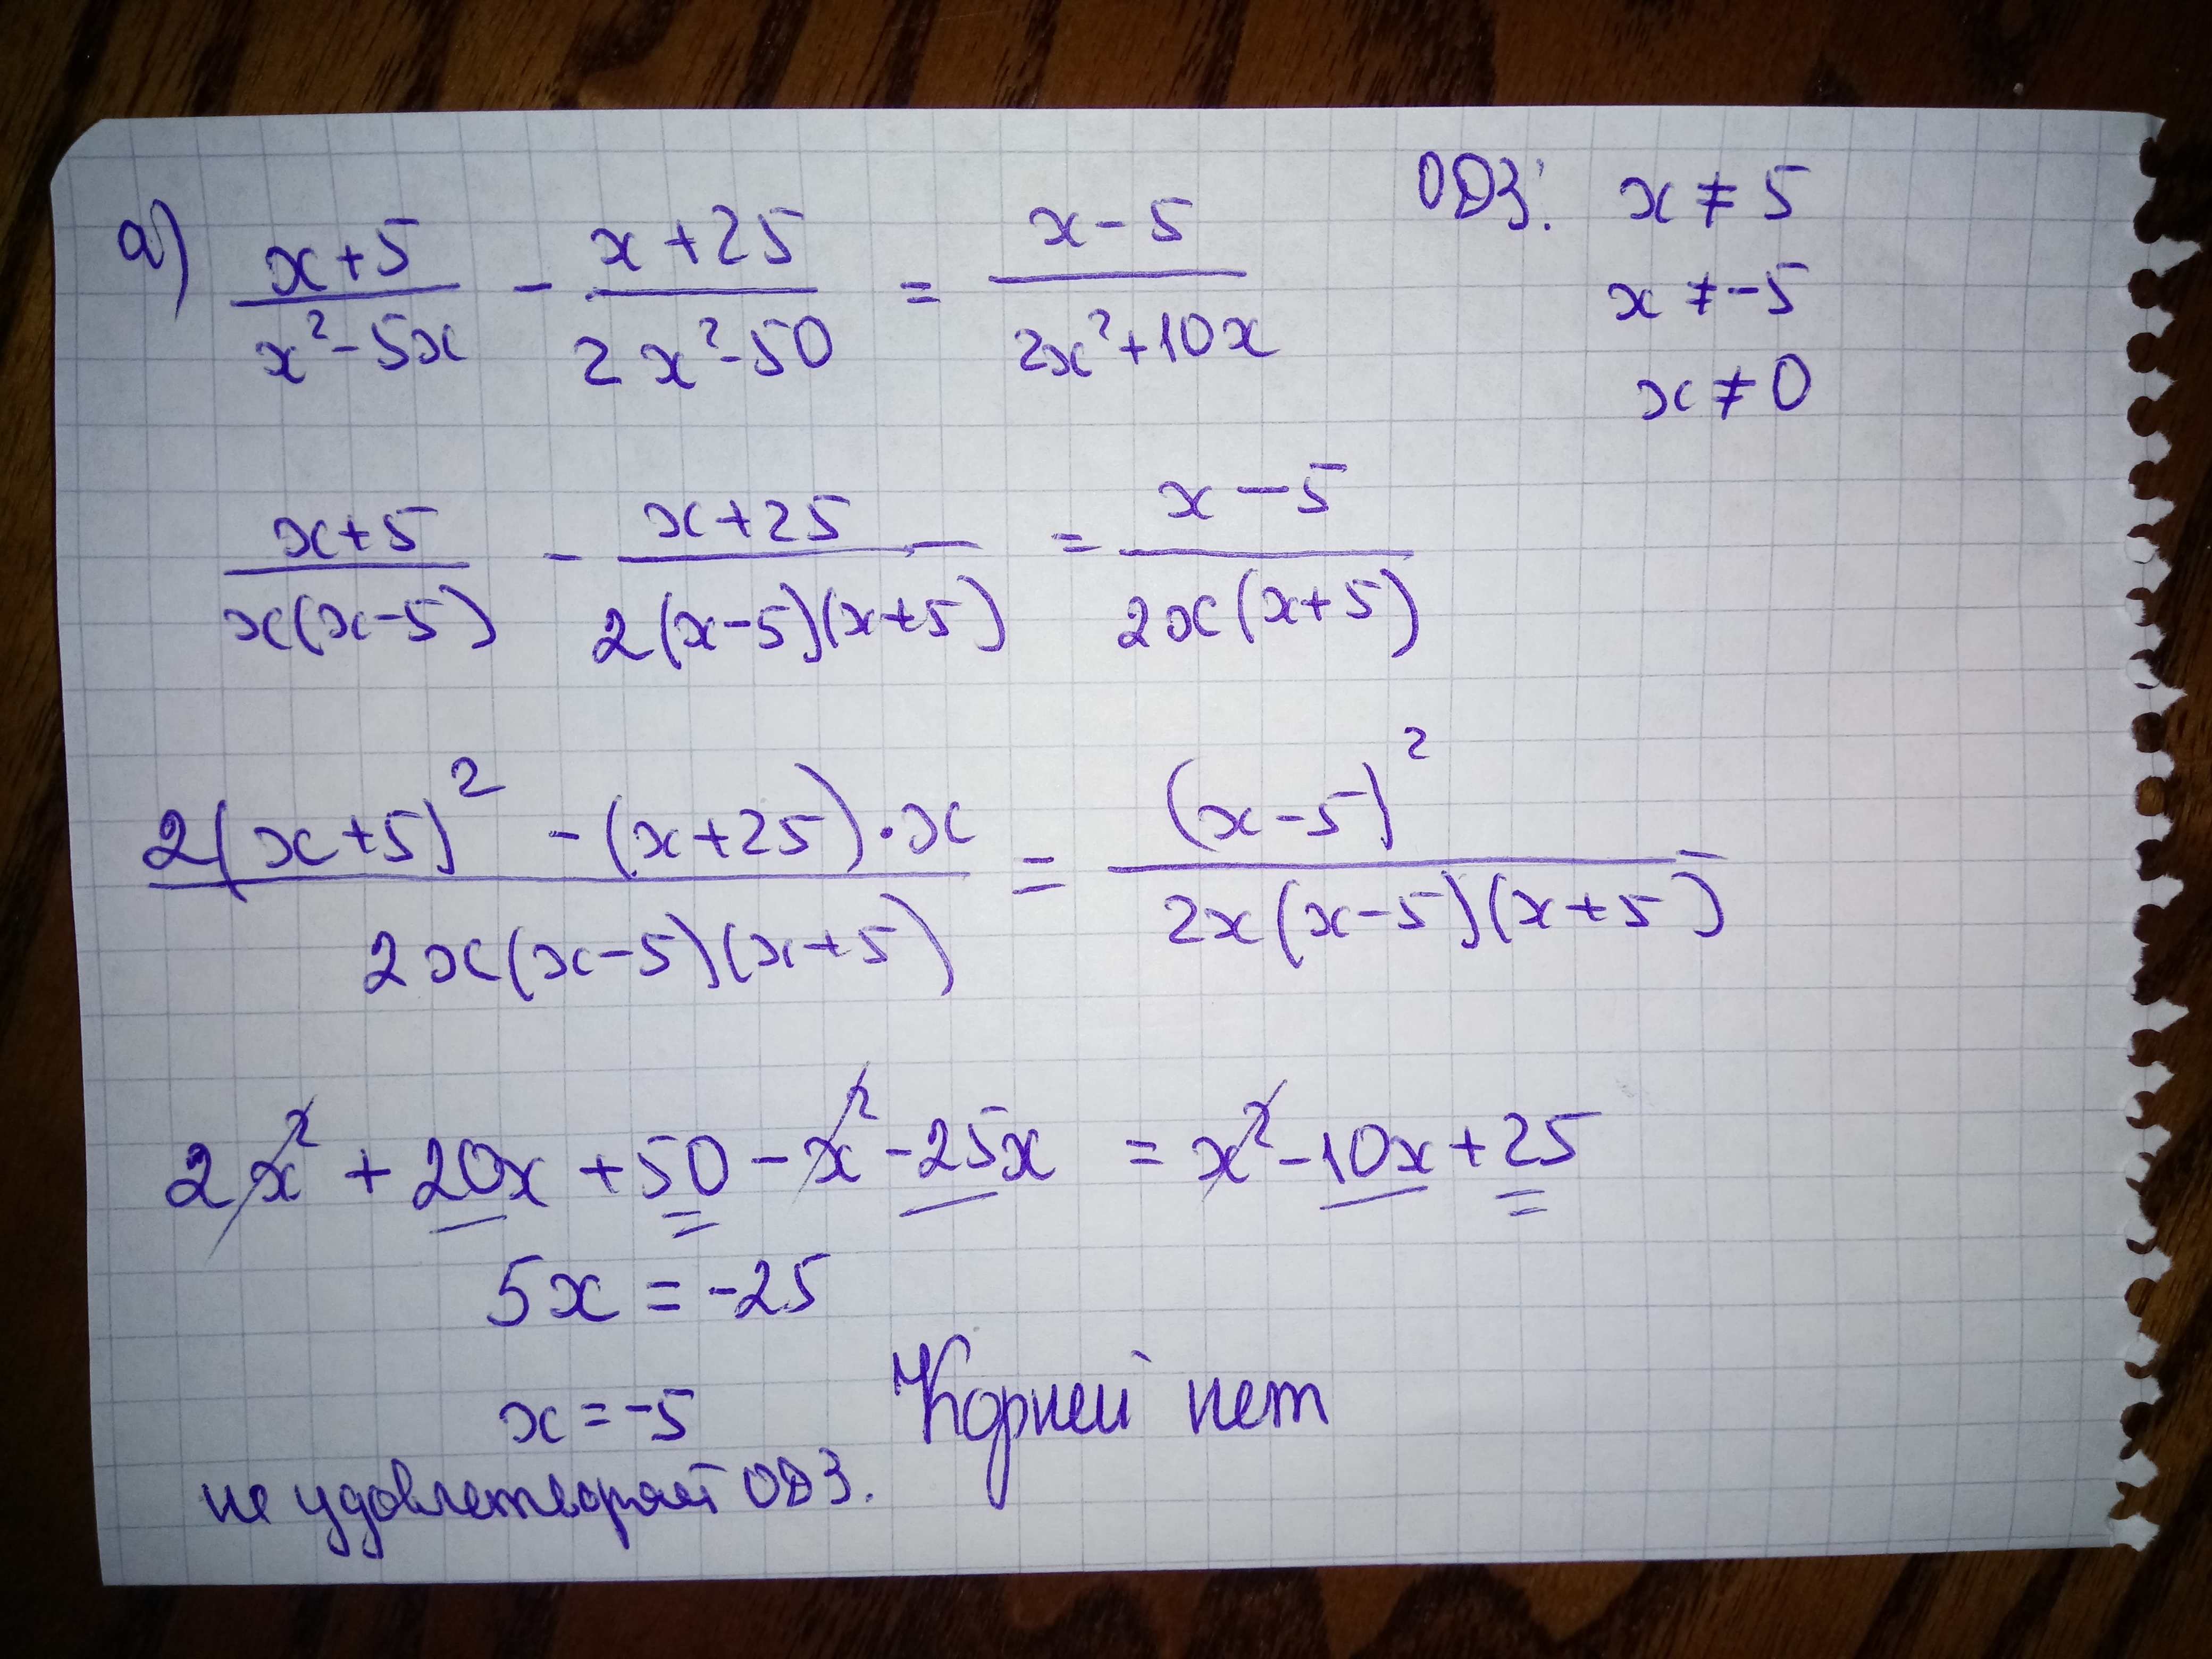 а) (x+5)/(x²-5x) - (x+25)/(2x²-50) = (x-5)/(2x²+10x)
ОДЗ: x ≠ 5
x ≠ -5
x ≠ 0
(x+5)/(x(x-5)) - (x+25)/(2(x-5)(x+5)) = (x-5)/(2x(x+5))
(2(x+5)² - (x+25)·x)/(2x(x-5)(x+5)) = (x-5)²/(2x(x-5)(x+5))
2x² + 20x + 50 - x² - 25x = x² - 10x + 25
5x = -25
x = -5 Корней нет
не удовлетворяет ОДЗ.